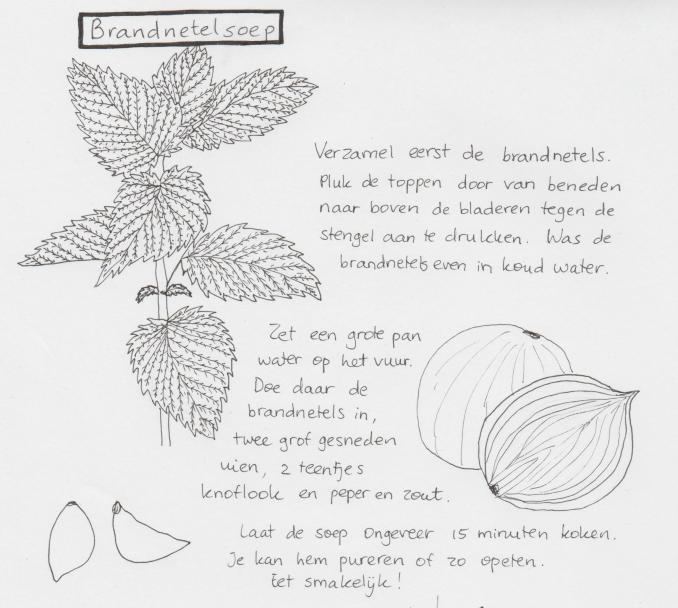 Brandnetelsoep
Verzamel eerst de brandnetels.
Pluk de toppen door van beneden
naar boven de bladeren tegen de
stengel aan te drukken. Was de
brandnetels even in koud water.
Zet een grote pan
water op het vuur.
Doe daar de
brandnetels in,
twee grof gesneden
uien, 2 teentjes
knoflook en peper en zout.
Laat de soep ongeveer 15 minuten koken.
Je kan hem pureren of zo opeten.
Eet smakelijk!